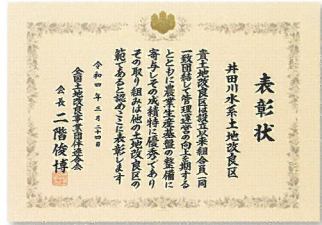 表彰状
井田川水系土地改良区
貴土地改良区は設立以来組合員一同
一致団結して管理運営の向上を期する
とともに農業生産基盤の整備に
寄与しその成績特に優秀であり
その取り組みは他の土地改良区の
範であると認めここに表彰します
令和四年三月二十四日
全国土地改良事業団体連合会
会長 二階俊博